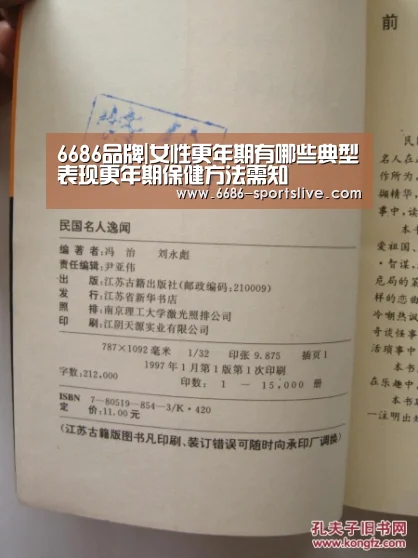 前
6686品牌|女性更年期有哪些典型
表现更年期保健方法需知
www.6686-sportslive.com
民国名人逸闻
编著者:冯 治 刘永彪
责任编辑:尹亚伟
出 版:江苏古籍出版社(邮政编码:210009)
发 行:江苏省新华书店
照 排:南京理工大学激光照排公司
印 刷:江阴天源实业有限公司
787×1092毫米 1/32 印张 9.875 插页1
1997年1月第1版第1次印刷
字数:212,000 印数:1-15,000 册
ISBN 7-80519-854-3/K·420
定 价:11.00元
(江苏古籍版图书凡印刷、装订错误可随时向承印厂调换)
民
名人在
作所为,
撷精华,
事中,读
本书
爱祖国、
危局的
样的恋曲
冷嘲热讽
奇谈怪事
活琐事中
本书
在乐趣中
本书
一注明出
孔夫子旧书网
www.kongfz.com